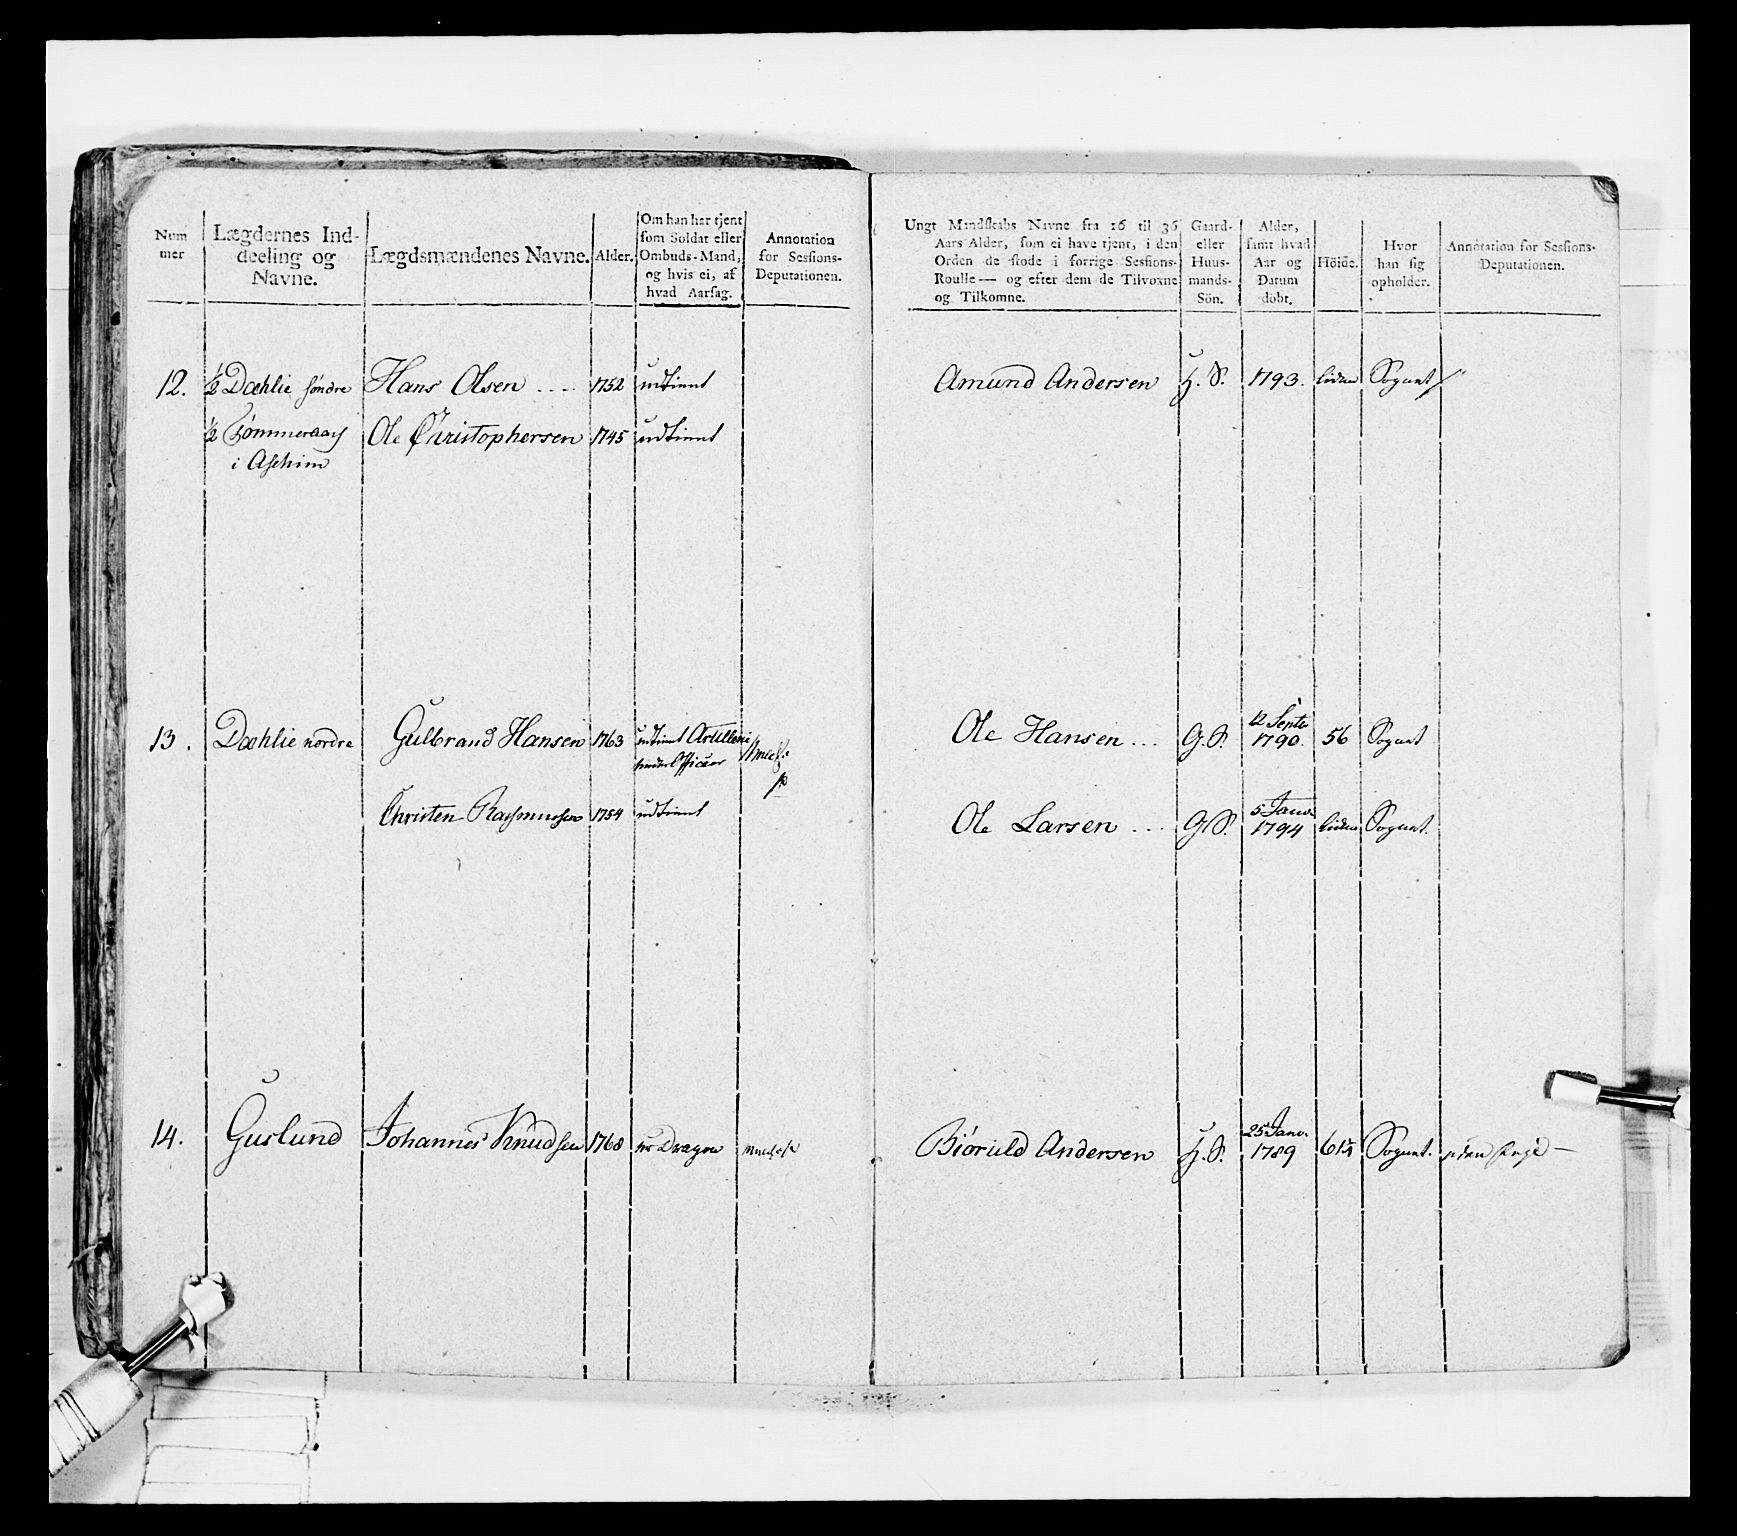 Num
mer
Lægdernes Ind-
deeling og
Navne.
Lægdsmændenes Navne.
Alder.
Om han har tjent
som Soldat eller
Ombuds-Mand,
og hvis ei, af
hvad Aarsag.
Annotation
for Sessions-
Deputationen.
Ungt Mandskabs Navne fra 16 til 36
Aars Alder, som ei have tjent, i den
Orden de stode i forrige Sessions-
Roulle — og efter dem de Tilvoxne
og Tilkomne.
Gaard-
eller
Huus-
mands-
Sön.
Alder,
samt hvad
Aar og
Datum
döbt.
Höide.
Hvor
han sig
opholder.
Annotation for Sessions-
Deputationen.
12. ½ Dæhlie söndre Hans Olsen 1752 udtient Amund Andersen H. S. 1793. liden Sognet
½ Ole Christophersen 1745 udtient
i Aschim
13. Dæhlie nordre Gulbrand Hansen 1763 udtient Artillerie Ole Hansen G. S. 12 Septr 1790. 56 Sognet
underOfficeer
Christen Rasmussen 1754 udtient Ole Larsen G. S. 5 Janv. 1794 liden Sognet.
14. Guslund Johannes Knudsen 1768 Dragon Biöruld Andersen H. S. 25 Janv. 1789 61½ Sognet.